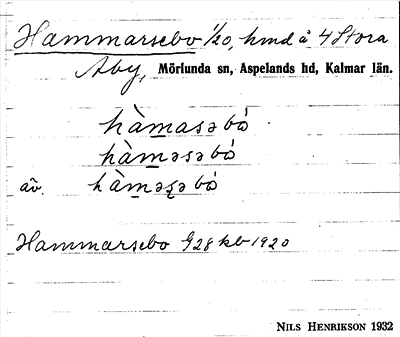 Hammarsebo 1/20, hmd å 4 Stora
Åby, Mörlunda sn, Aspelands hd, Kalmar län.
hàm̲asəbó
hàm̲əsəbó
äv. hàm̲əs̨əbó
Hammarsebo 928 kb 1920
NILS HENRIKSON 1932